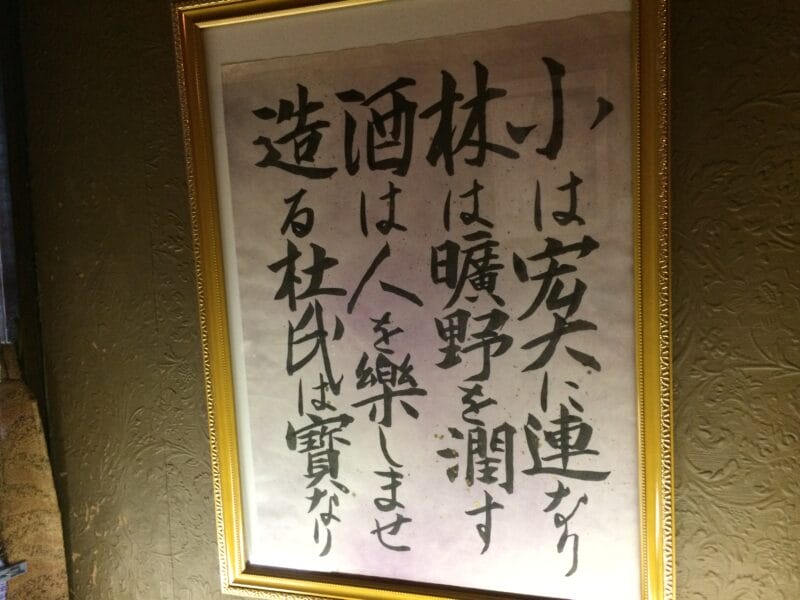 小は宏大に連なり
林は曠野を潤す
酒は人を樂しませ
造る杜氏は寳なり